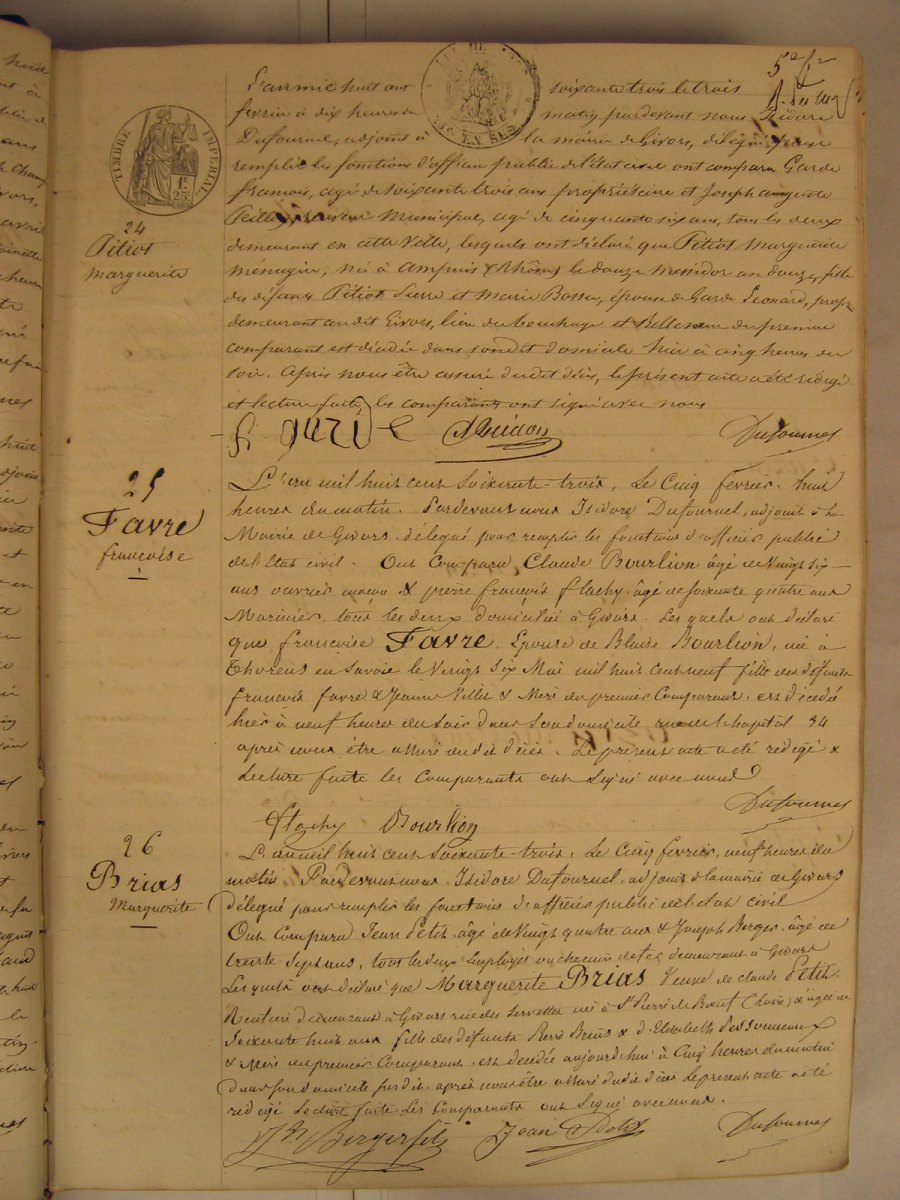 TIMBRE IMPÉRIAL
1F.
25c.
L'an mil huit cent soixante trois le trois
fevrier à dix heures du matin pardevant nous Isidore
Dufournel, adjoint à la mairie de Givors, délégué pour
remplir les fonctions d'officier public de l'état civil ont comparu Garde
francois, agé de soixante trois ans propriétaire et Joseph auguste
Municipal, agé de cinquante six ans, tous les deux
demeurant en cette Ville, lesquels ont déclaré que Pitiot Marguerite
ménagère, née à Ampuis (Rhône) le douze Messidor an douze, fille
des défunts Pitiot Pierre et Marie Bossu, épouse de Garde Leonard, propre
demeurant audit Givors, lieu du bouchage et Bellesoeur du premier
comparant est décédée dans sondit domicile hier à cinq heures du
soir. Après nous être assuré dudit décès, le présent acte a été rédigé
et lecture faite, les comparants ont signé avec nous
24
Pitiot
Marguerite
f. garde
Dufournel
25
Favre
françoise
L'an mil huit cent Soixante-trois, Le Cinq fevrier, huit
heures du matin. Pardevant nous Isidore Dufournel, adjoint à la
Mairie de Givors, délégué pour remplir les fonctions d'officier public
de l'Etat civil. Ont Comparu Claude Bourlion âgé de Vingt six
ans ouvrier & pierre françois flachy âgé de Soixante quatre ans
Marinier, tous les deux domiciliés à Givors. Les quels ont déclaré
que françoise Favre, Epouse de Blaise Bourlion, née à
Thorens en Savoie le Vingt Six Mai mil huit Cent neuf fille des défunts
francois favre & Jeanne Villet & Mère du premier Comparant, est décédée
hier à neuf heures du Soir dans Son domicile rue de l'hopital 34
après nous être assuré dudit décès. Le présent acte a été redigé &
Lecture faite les Comparants ont Signé avec nous
Flachy Bourlion Dufournel
26
Brias
Marguerite
L'an mil huit cent Soixante-trois, Le Cinq fevrier, neuf heures du
matin Pardevant nous Isidore Dufournel, adjoint à la mairie de Givors
délégué pour remplir les fonctions d'officier public de l'etat civil
Ont Comparu Jean Petit âgé de Vingt quatre ans & Joseph Berger âgé de
trente Sept ans, tous les deux Employés au chemin de fer demeurant à Givors
Les quels ont déclaré que Marguerite Brias Veuve de claude Petit
Rentière demeurant à Givors rue des née à St Pierre de Boeuf (Loire) & agée de
Soixante huit ans fille des défunts Pierre Brias & d'Elisabeth Dessonneaux
& Mère du premier Comparant, est decédée aujourd'hui à Cinq heures du matin
dans son domicile susdit, après nous être assuré dudit décès Le présent acte a été
redigé Lecture faite Les Comparants ont Signé avec nous.
Jh Berger fils Jean Petit Dufournel